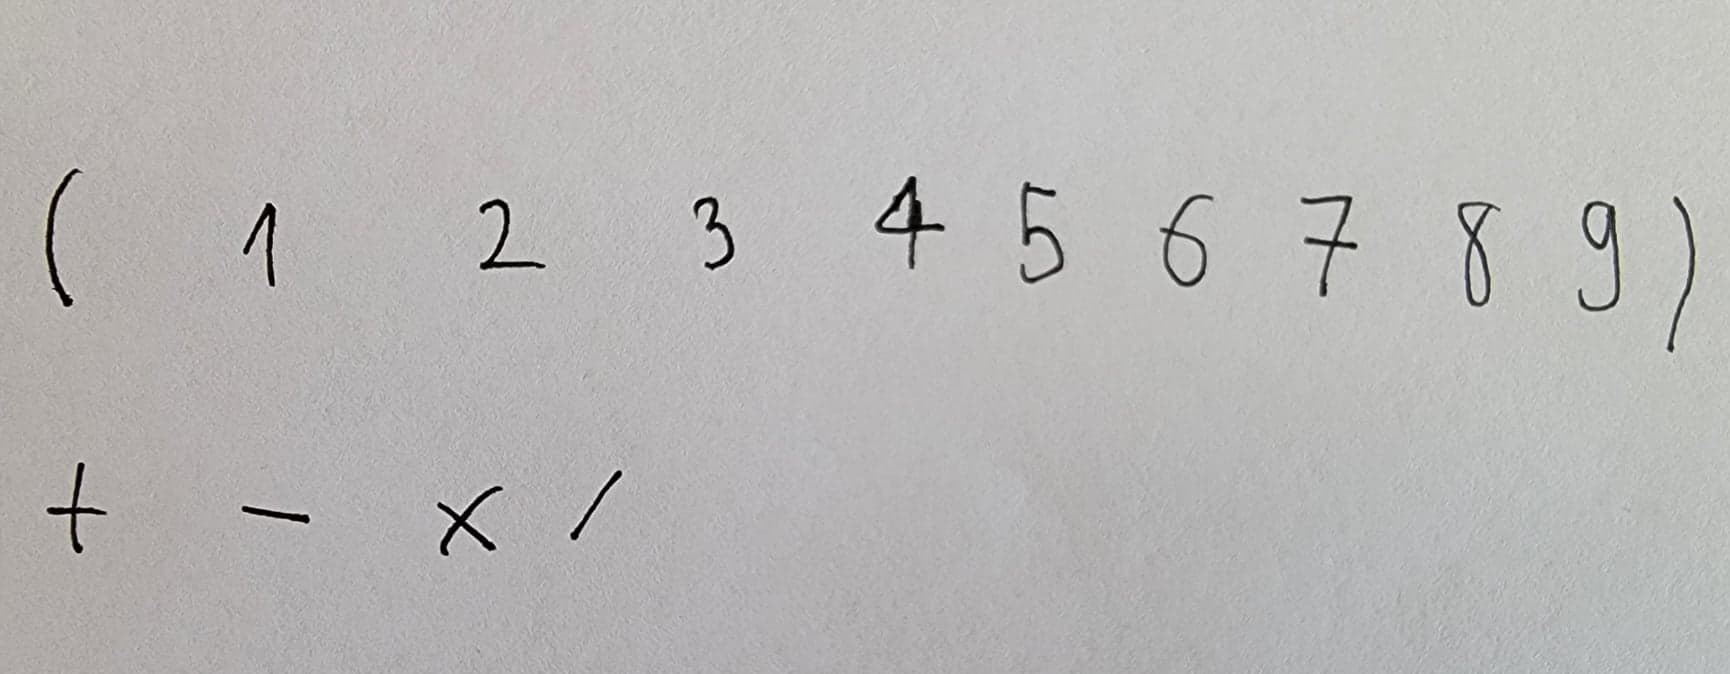 ( 1 2 3 4 5 6 7 8 9 )
+ - x /